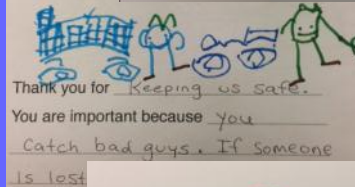 Thank you for Keeping us safe.
You are important because you
Catch bad guys. If Someone
is lost